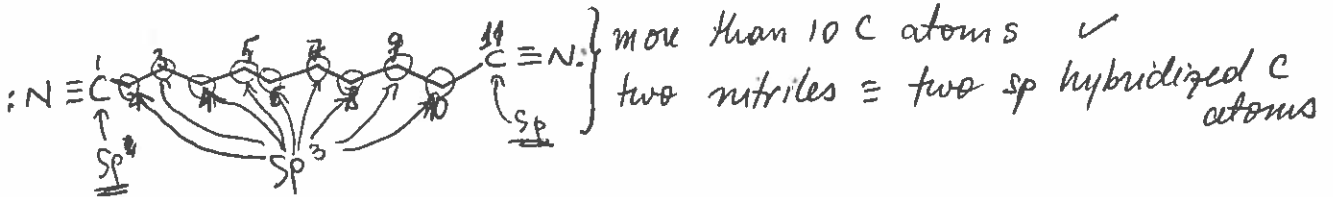 :N ≡ C 1 2 3 4 5 6 7 8 9 10 11 C ≡ N: } more than 10 C atoms ✓
two nitriles ≡ two sp hybridized C
atoms
Sp Sp³ Sp